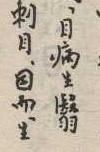 目病生翳
刺目、因而生